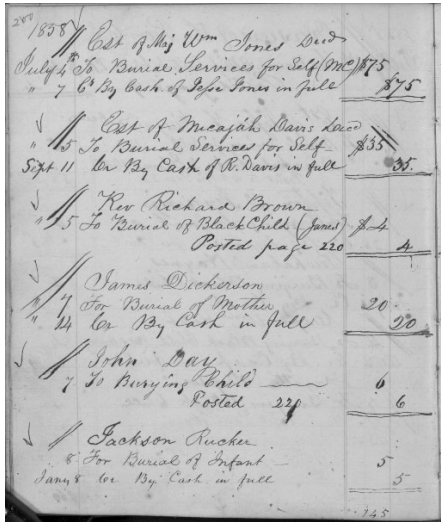 280
1858 Est of Maj Wm Jones Decd
July 4th To Burial Services for Self (Mc) $75
" 7 Cr By Cash of Jesse Jones in full $75
Est of Micajah Davis Decd
" 5 To Burial Services for Self $35
Sept 11 Cr By Cash of R. Davis in full 35.
Rev Richard Brown
" 5 To Burial of Black Child (Janes) $4
Posted page 220 4
James Dickerson
" 7 For Burial of Mother 20
" 14 Cr By Cash in full 20
John Day
7 To Burying Child 6
Posted 221 6
Jackson Rucker
8 For Burial of Infant 5
Jany 8 Cr By Cash in full 5
145